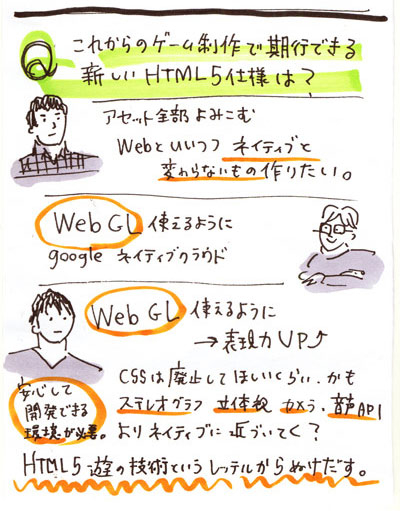 Q これからのゲーム制作で期行できる
新しいHTML5仕様は？
アセット全部よみこむ
Webといいつつ ネイティブと
変わらないもの作りたい。
Web GL 使えるように
google ネイティブクラウド
Web GL 使えるように
→表現力UP↑
CSSは廃止してほしいくらい．かも
ステレオグラフ 立体視 カメラ．音声API
よりネイティブに近づいてく？
安心して
開発できる
環境が必要。
HTML5 遊の技術というレッテルからぬけだす。